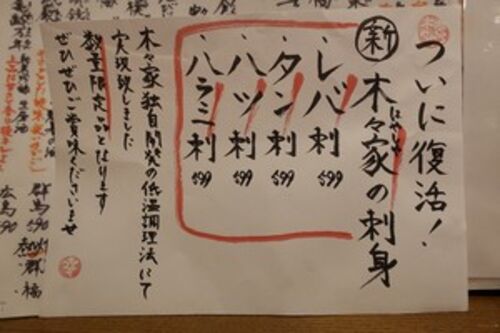 ついに復活!
はやしや
新 木々家の刺身
・レバ刺 599
・タン刺 599
・ハツ刺 599
・ハラミ刺 599
木々家独自開発の低温調理法にて
実現致しました
数量限定品となります
ぜひぜひご賞味くださいませ
群馬
広島